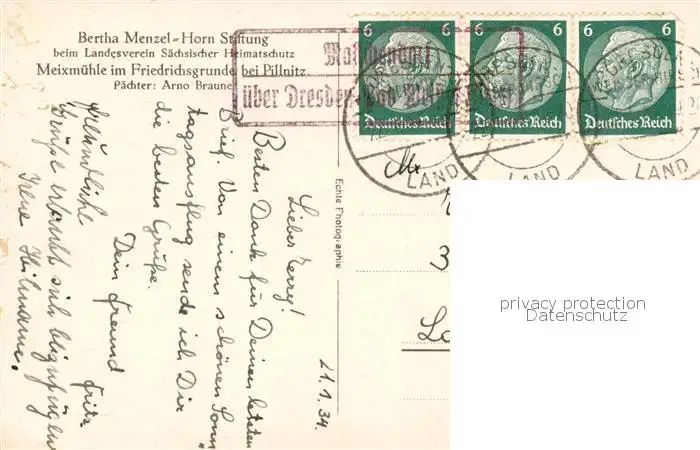 Bertha Menzel-Horn Stiftung
beim Landesverein Sächsischer Heimatschutz
Meixmühle im Friedrichsgrunde bei Pillnitz.
Pächter: Arno Braune
über Dresden-Bad
6
6
6
Deutsches Reich
Deutsches Reich
Deutsches Reich
LAND
LAND
LAND
Echte Photographie
21.1.34.
Lieber Gerry!
Besten Dank für Deinen letzten
Brief. Von einem schönen Sonn
tagsausflug sende ich Dir
die besten Grüße.
Dein Freund
Fritz
Freundliche
Grüße erlaubt sich beizufügen
Irene
3
privacy protection
Datenschutz